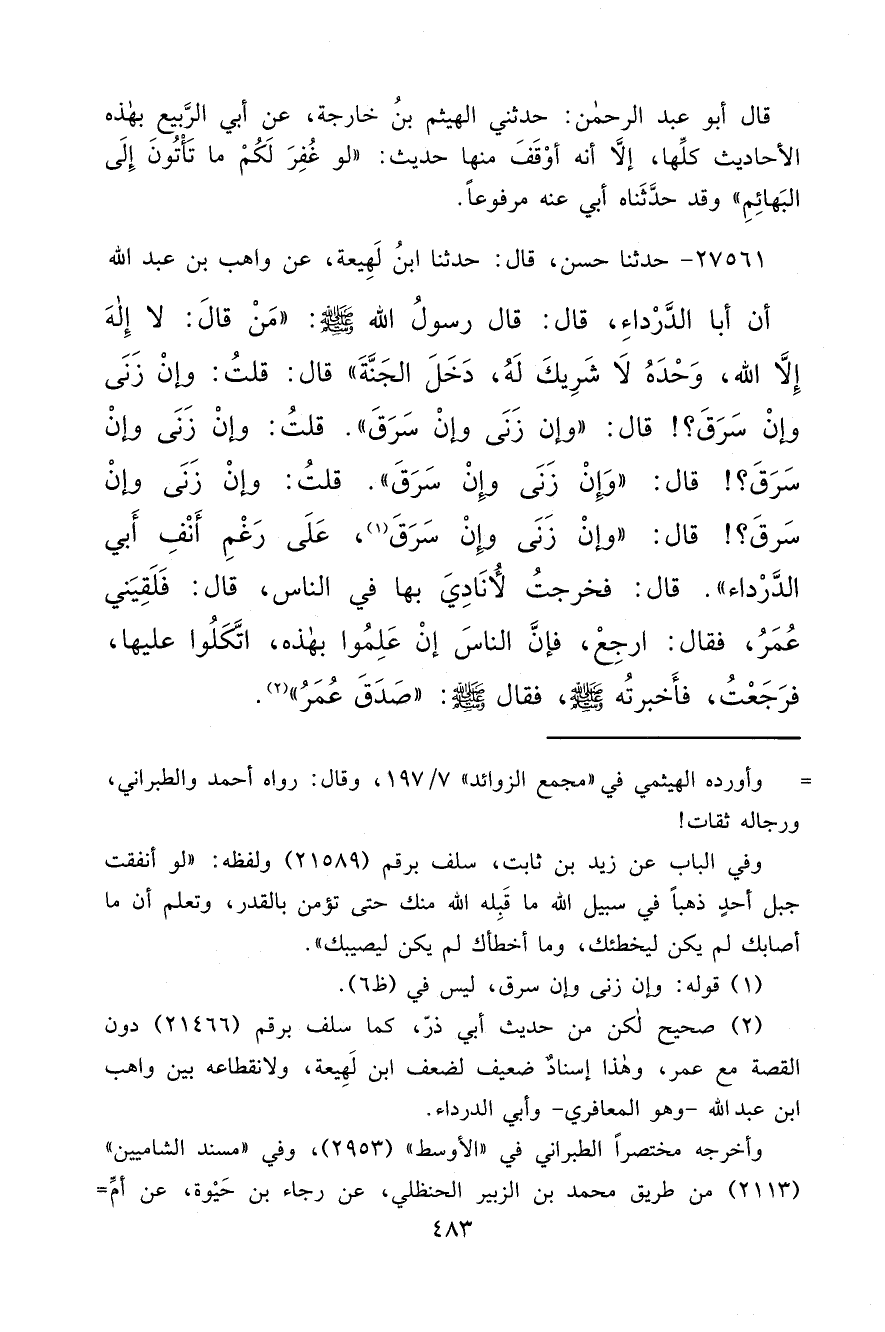 قال أبو عبد الرحمٰن: حدثني الهيثم بنُ خارجة، عن أبي الرَّبيع بهٰذه
الأحاديث كلِّها، إلَّا أنه أوْقَفَ منها حديث: «لو غُفِرَ لَكُمْ ما تَأْتُونَ إِلَى
البَهائِمِ» وقد حدَّثَناه أبي عنه مرفوعاً.
٢٧٥٦١- حدثنا حسن، قال: حدثنا ابنُ لَهِيعة، عن واهب بن عبد الله
أن أبا الدَّرْداءِ، قال: قال رسولُ الله ﷺ: «مَنْ قالَ: لا إِلٰهَ
إِلَّا الله، وَحْدَهُ لَا شَرِيكَ لَهُ، دَخَلَ الجَنَّةَ» قال: قلتُ: وإنْ زَنَى
وإنْ سَرَقَ؟! قال: «وإن زَنَى وإنْ سَرَقَ». قلتُ: وإنْ زَنَى وإنْ
سَرَقَ؟! قال: «وَإِنْ زَنَى وإِنْ سَرَقَ». قلتُ: وإنْ زَنَى وإنْ
سَرقَ؟! قال: «وإنْ زَنَى وإنْ سَرَقَ(١)، عَلَى رَغْمِ أَنْفِ أَبي
الدَّرْداء». قال: فخرجتُ لأُنَادِيَ بها في الناس، قال: فَلَقِيَني
عُمَرُ، فقال: ارجِعْ، فإنَّ الناسَ إنْ عَلِمُوا بهٰذه، اتَّكَلُوا عليها،
فرَجَعْتُ، فأَخبرتُه ﷺ، فقال ﷺ: «صَدَقَ عُمَرُ»(٢).
= وأورده الهيثمي في «مجمع الزوائد» ١٩٧/٧، وقال: رواه أحمد والطبراني،
ورجاله ثقات!
وفي الباب عن زيد بن ثابت، سلف برقم (٢١٥٨٩) ولفظه: «لو أنفقت
جبل أحدٍ ذهباً في سبيل الله ما قَبِله الله منك حتى تؤمن بالقدر، وتعلم أن ما
أصابك لم يكن ليخطئك، وما أخطأك لم يكن ليصيبك».
(١) قوله: وإن زنى وإن سرق، ليس في (ظ٦).
(٢) صحيح لٰكن من حديث أبي ذرّ، كما سلف برقم (٢١٤٦٦) دون
القصة مع عمر، وهٰذا إسنادٌ ضعيف لضعف ابن لَهِيعة، ولانقطاعه بين واهب
ابن عبد الله -وهو المعافري- وأبي الدرداء.
وأخرجه مختصراً الطبراني في «الأوسط» (٢٩٥٣)، وفي «مسند الشاميين»
(٢١١٣) من طريق محمد بن الزبير الحنظلي، عن رجاء بن حَيْوة، عن أمِّ=
٤٨٣